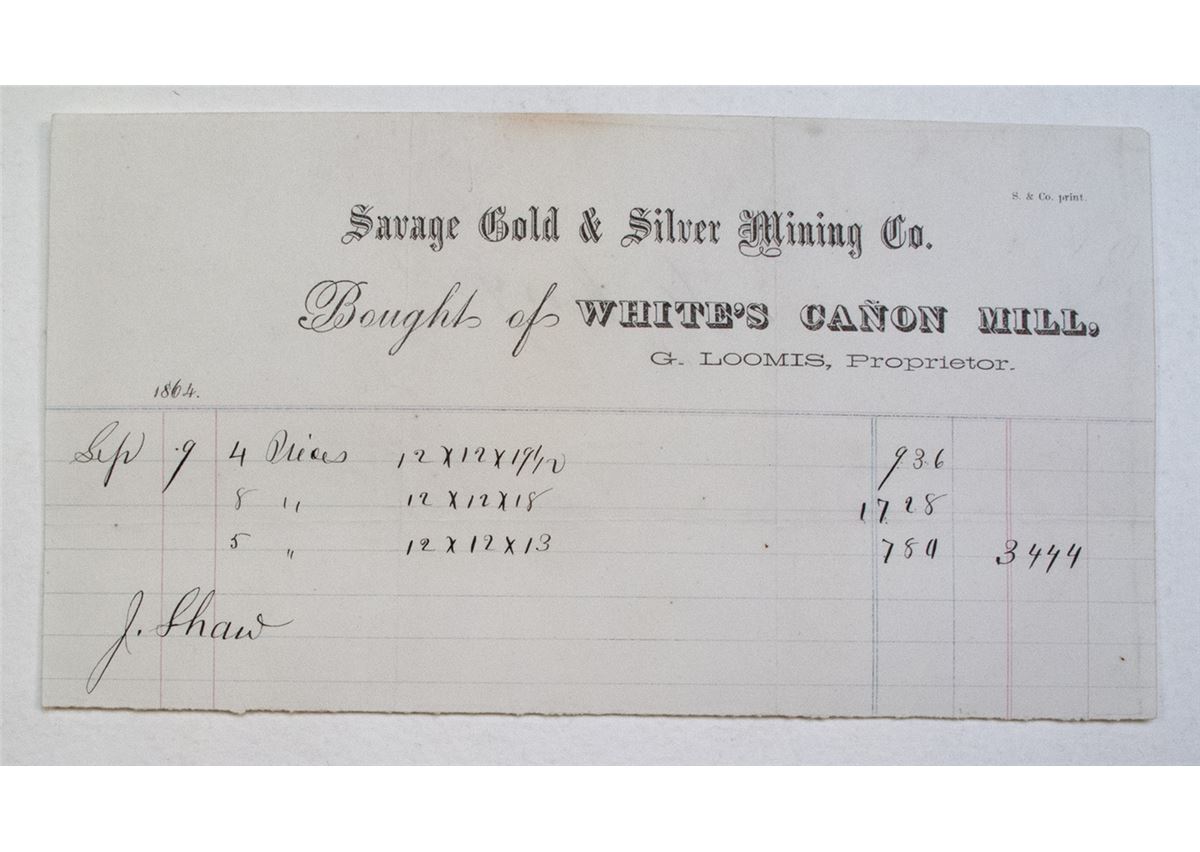 S. & Co. print.
Savage Gold & Silver Mining Co.
Bought of WHITE'S CAÑON MILL,
G. LOOMIS, Proprietor.
1864.
Sep 9 4 Pieces 12 X 12 X 19 1/2 936
8 " 12 X 12 X 18 1728
5 " 12 X 12 X 13 780 3444
J. Shaw